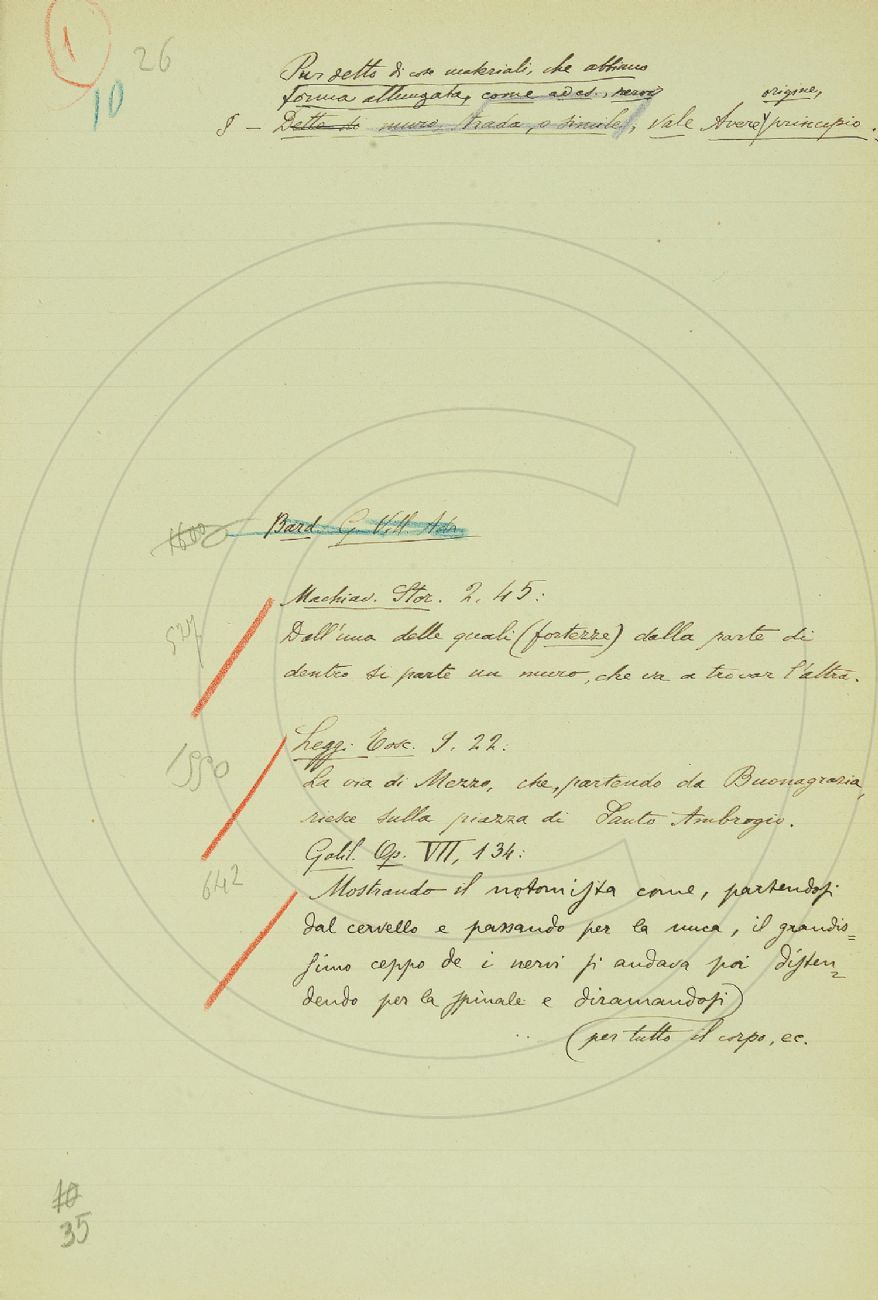 1
26
10
Pur detto di cose materiali, che abbiano
forma allungata, come ad es., nervo
origine,
§ – Detto di muro, strada, o simile, vale Avere principio.
1600 Bard. G. Vill. Ado
Machiav. Stor. 2. 45:
527
Dall'una delle quali (fortezze) dalla parte di
dentro si parte un muro, che va a trovar l'altra.
Legg. Tosc. I. 22:
1550
La via di Mezzo, che, partendo da Buonagrazia,
riesce sulla piazza di Santo Ambrogio.
Galil. Op. VII, 134:
642
Mostrando il notomista come, partendosi
dal cervello e passando per la nuca, il grandis=
simo ceppo de i nervi si andava poi disten=
dendo per la spinale e diramandosi)
(per tutto il corpo, ec.
10
35